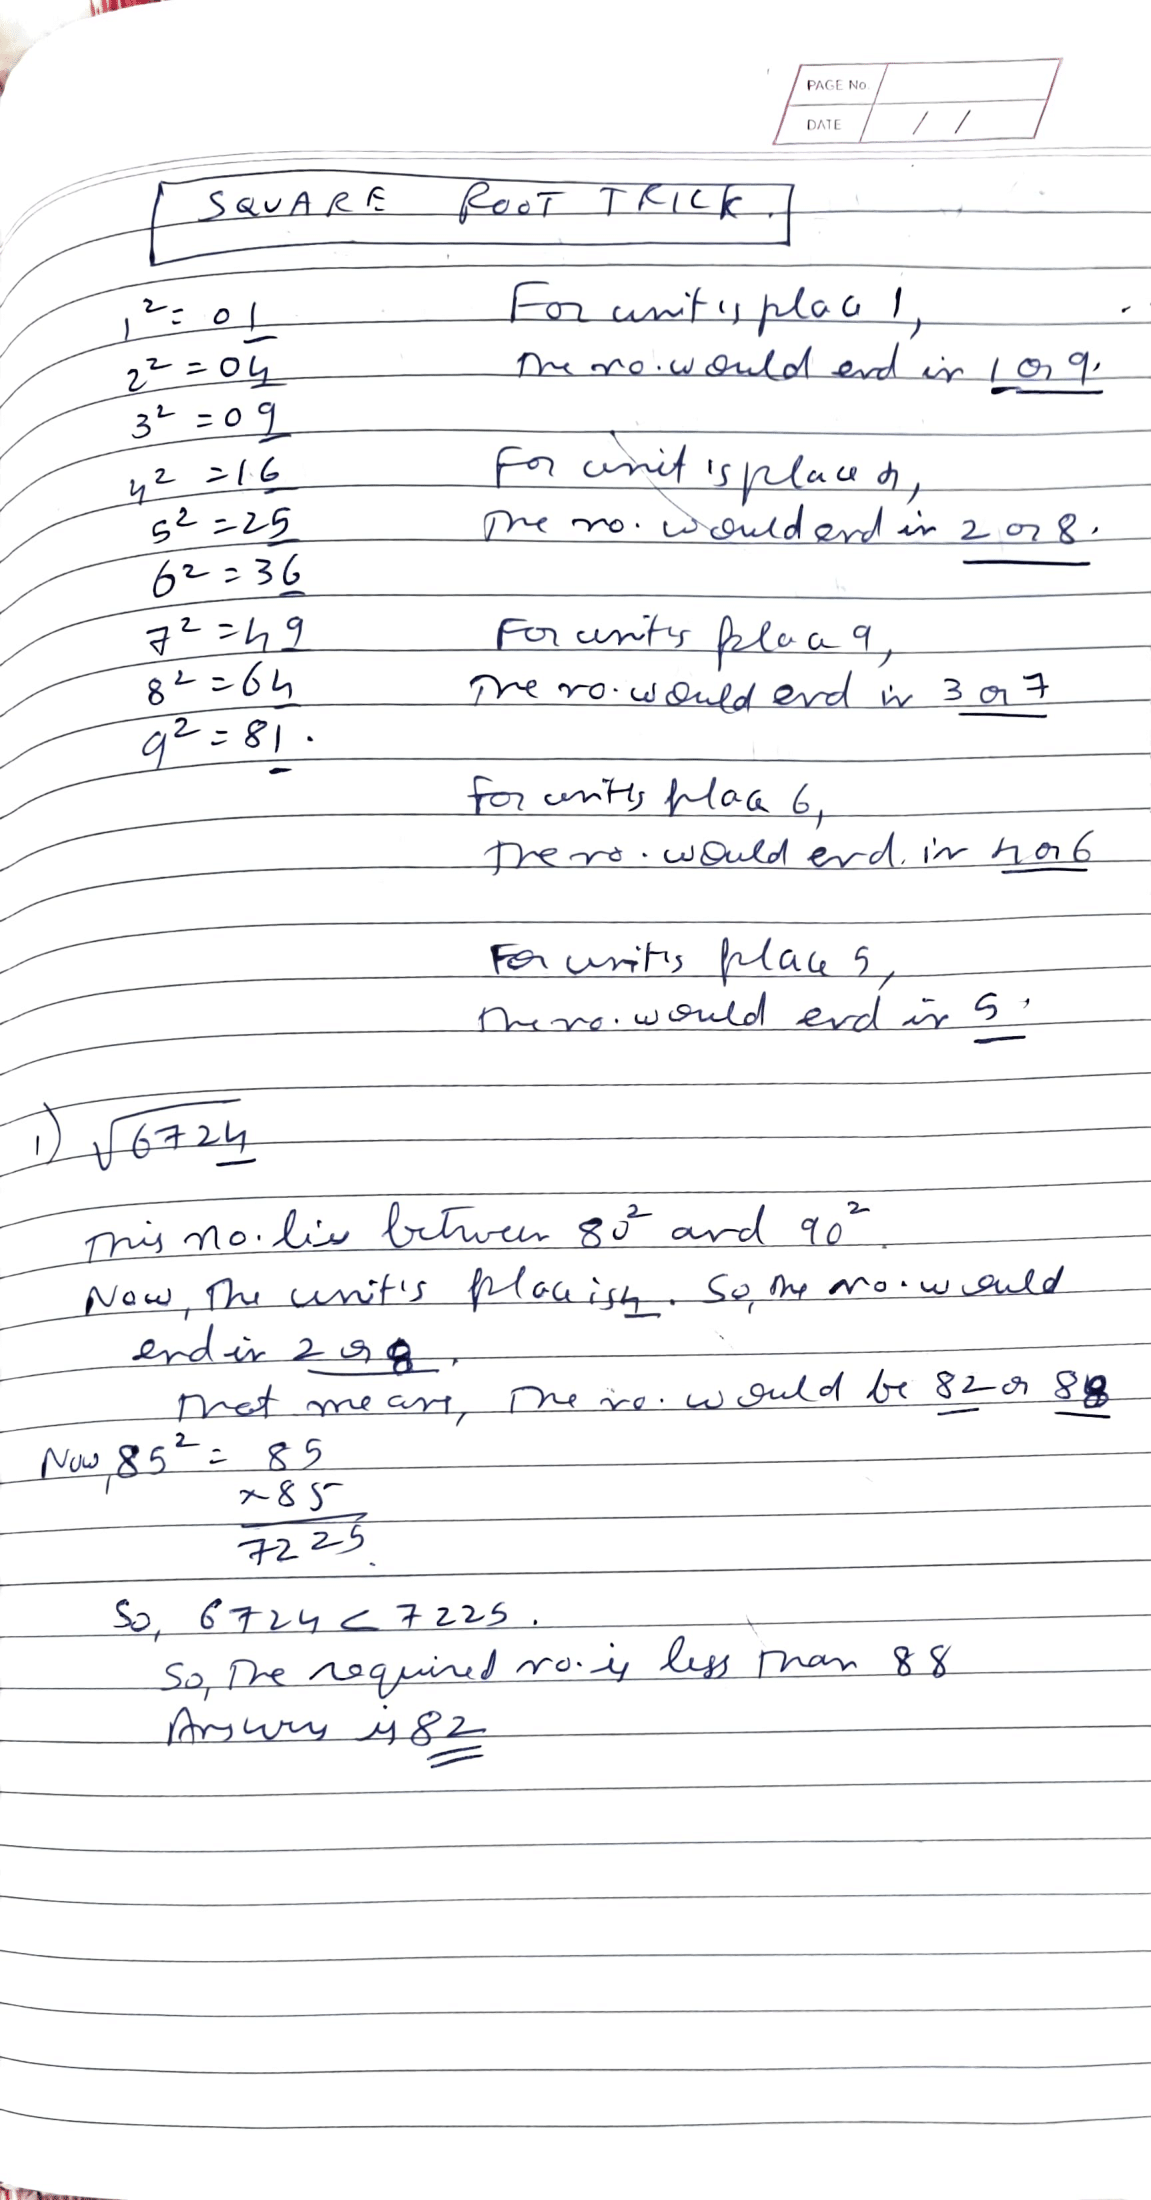 PAGE No.
DATE / /
SQUARE ROOT TRICK.
1² = 01
2² = 04
3² = 09
4² = 16
5² = 25
6² = 36
7² = 49
8² = 64
9² = 81.
For unit's place 1,
The no. would end in 1 or 9.
For unit's place 4,
The no. would end in 2 or 8.
For unit's place 9,
The no. would end in 3 or 7
For unit's place 6,
The no. would end in 4 or 6
For unit's place 5,
The no. would end in 5.
1) √6724
This no. lies between 80² and 90².
Now, The unit's place is 4. So, the no. would
end in 2 or 8.
That means, The no. would be 82 or 88
Now, 85² = 85
×85
7225.
So, 6724 < 7225.
So, The required no. is less than 88
Answer is 82